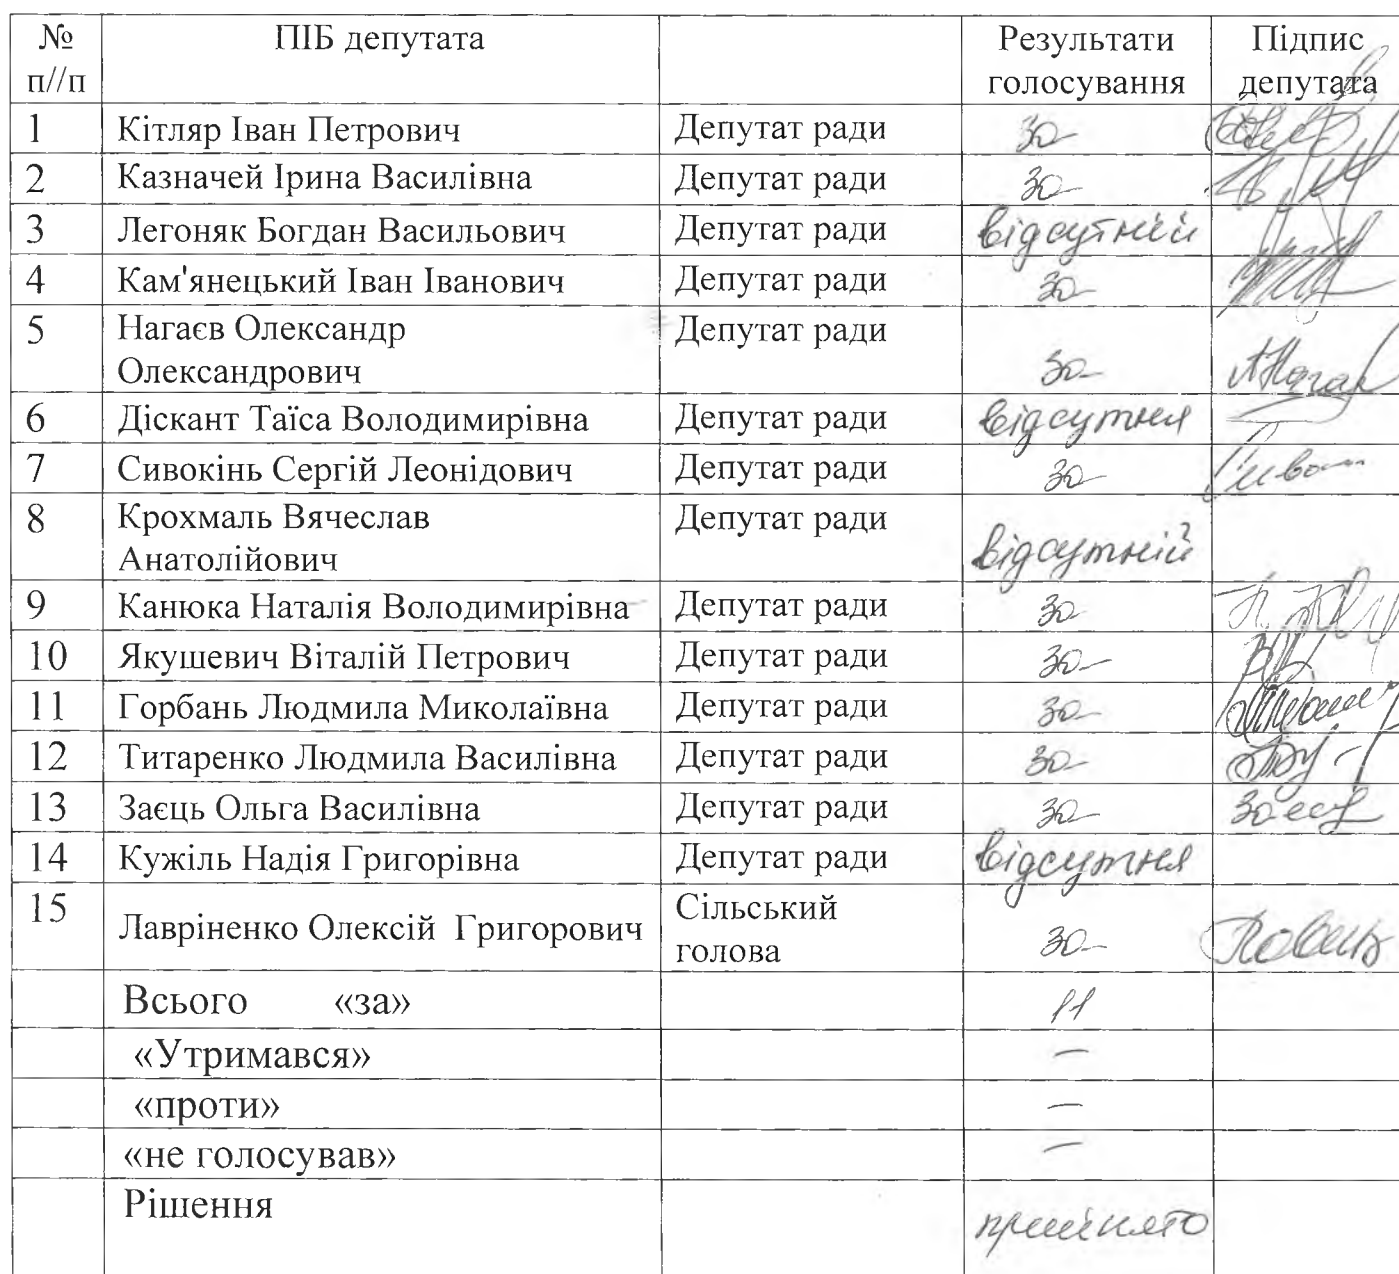 № ПІБ депутата Результати Підпис
п//п голосування депутата
1 Кітляр Іван Петрович Депутат ради за
2 Казначей Ірина Василівна Депутат ради за
3 Легоняк Богдан Васильович Депутат ради відсутній
4 Кам'янецький Іван Іванович Депутат ради за
5 Нагаєв Олександр Депутат ради
Олександрович за
6 Діскант Таїса Володимирівна Депутат ради відсутня
7 Сивокінь Сергій Леонідович Депутат ради за
8 Крохмаль Вячеслав Депутат ради
Анатолійович відсутній
9 Канюка Наталія Володимирівна Депутат ради за
10 Якушевич Віталій Петрович Депутат ради за
11 Горбань Людмила Миколаївна Депутат ради за
12 Титаренко Людмила Василівна Депутат ради за
13 Заєць Ольга Василівна Депутат ради за Заєць
14 Кужіль Надія Григорівна Депутат ради відсутня
15 Лавріненко Олексій Григорович Сільський
голова за
Всього «за» 11
«Утримався» —
«проти» —
«не голосував» —
Рішення прийнято